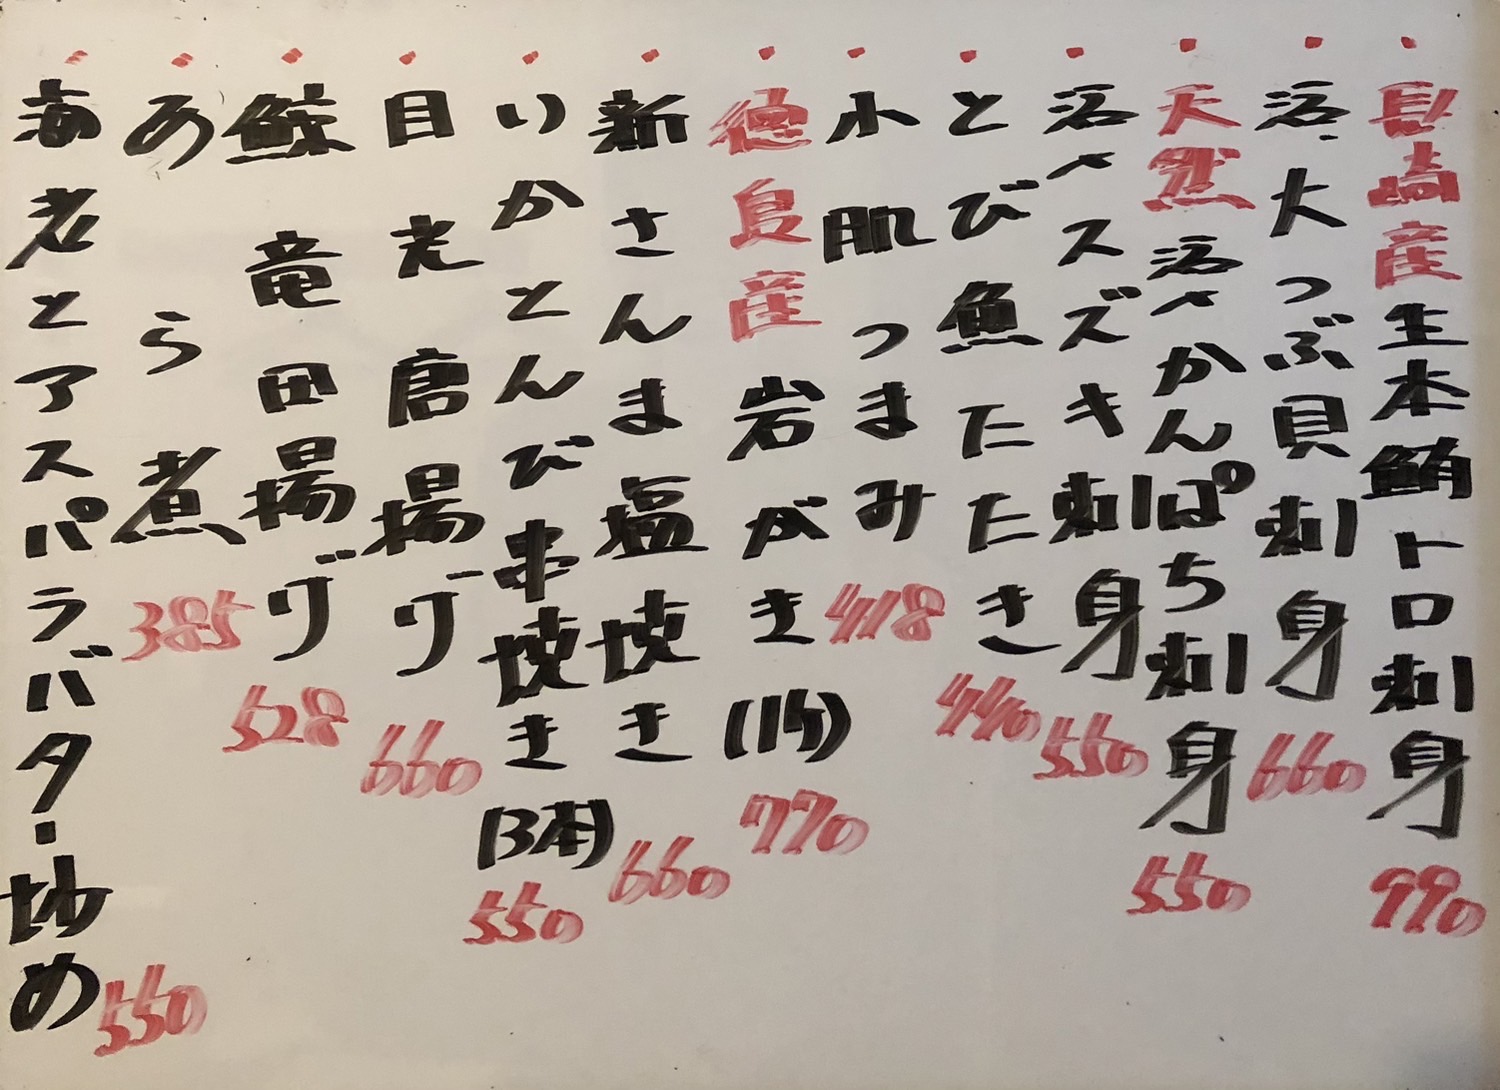 ・長崎産生本鮪トロ刺身 990
・活、大つぶ貝刺身 660
・天然活〆かんぱち刺身 550
・活〆スズキ刺身 550
・とび魚たたき 440
・小肌つまみ 418
・徳島産岩がき(1ケ) 770
・新さんま塩焼き 660
・いかとんび串焼き(3本) 550
・目光唐揚げ 660
・鯨竜田揚げ 528
・あら煮 385
・海老とアスパラバター炒め 550